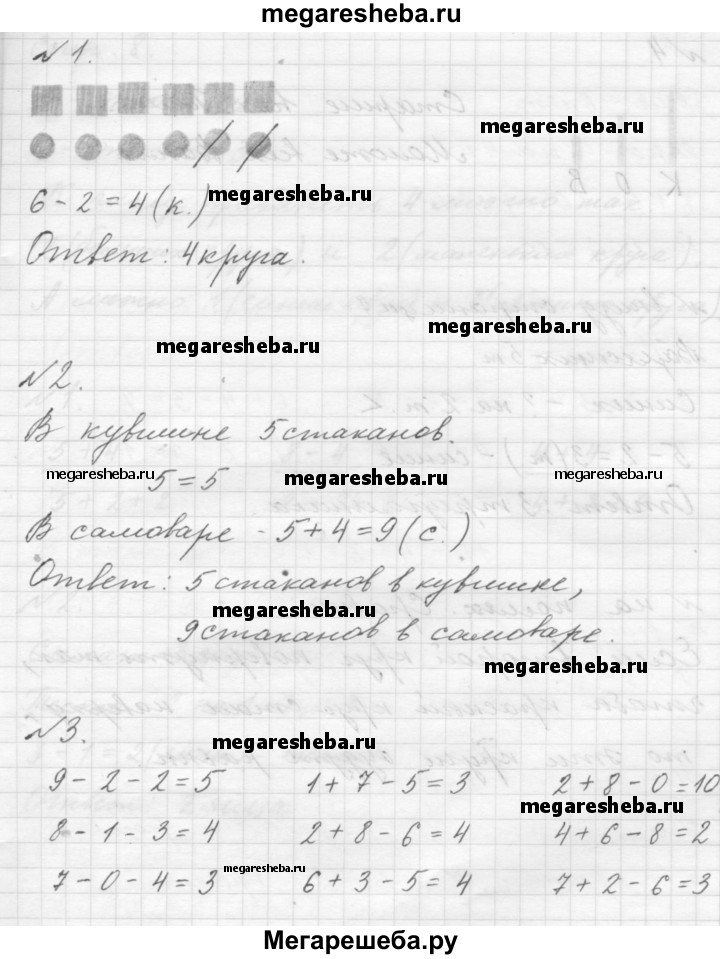 megaresheba.ru
№1.
megaresheba.ru
6 - 2 = 4 (к.)
megaresheba.ru
Ответ: 4 круга.
megaresheba.ru
megaresheba.ru
№2.
В кувшине 5 стаканов.
megaresheba.ru 5 = 5 megaresheba.ru megaresheba.ru
В самоваре - 5 + 4 = 9 (с.)
Ответ: 5 стаканов в кувшине,
megaresheba.ru
9 стаканов в самоваре.
megaresheba.ru
№3.
megaresheba.ru
9 - 2 - 2 = 5 1 + 7 - 5 = 3 2 + 8 - 0 = 10
megaresheba.ru
8 - 1 - 3 = 4 2 + 8 - 6 = 4 4 + 6 - 8 = 2
megaresheba.ru
7 - 0 - 4 = 3 6 + 3 - 5 = 4 7 + 2 - 6 = 3
Мегарешеба.ру